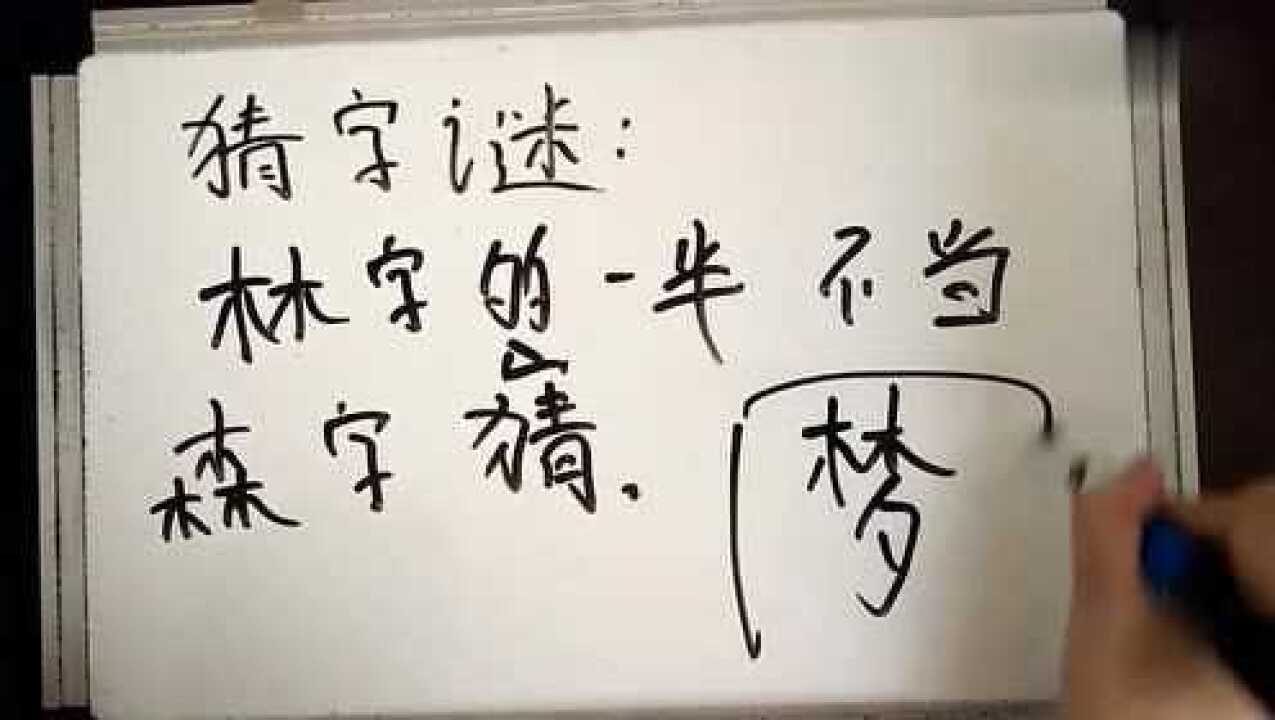 猜字谜:
林字的一半不当
森字猜.
梦